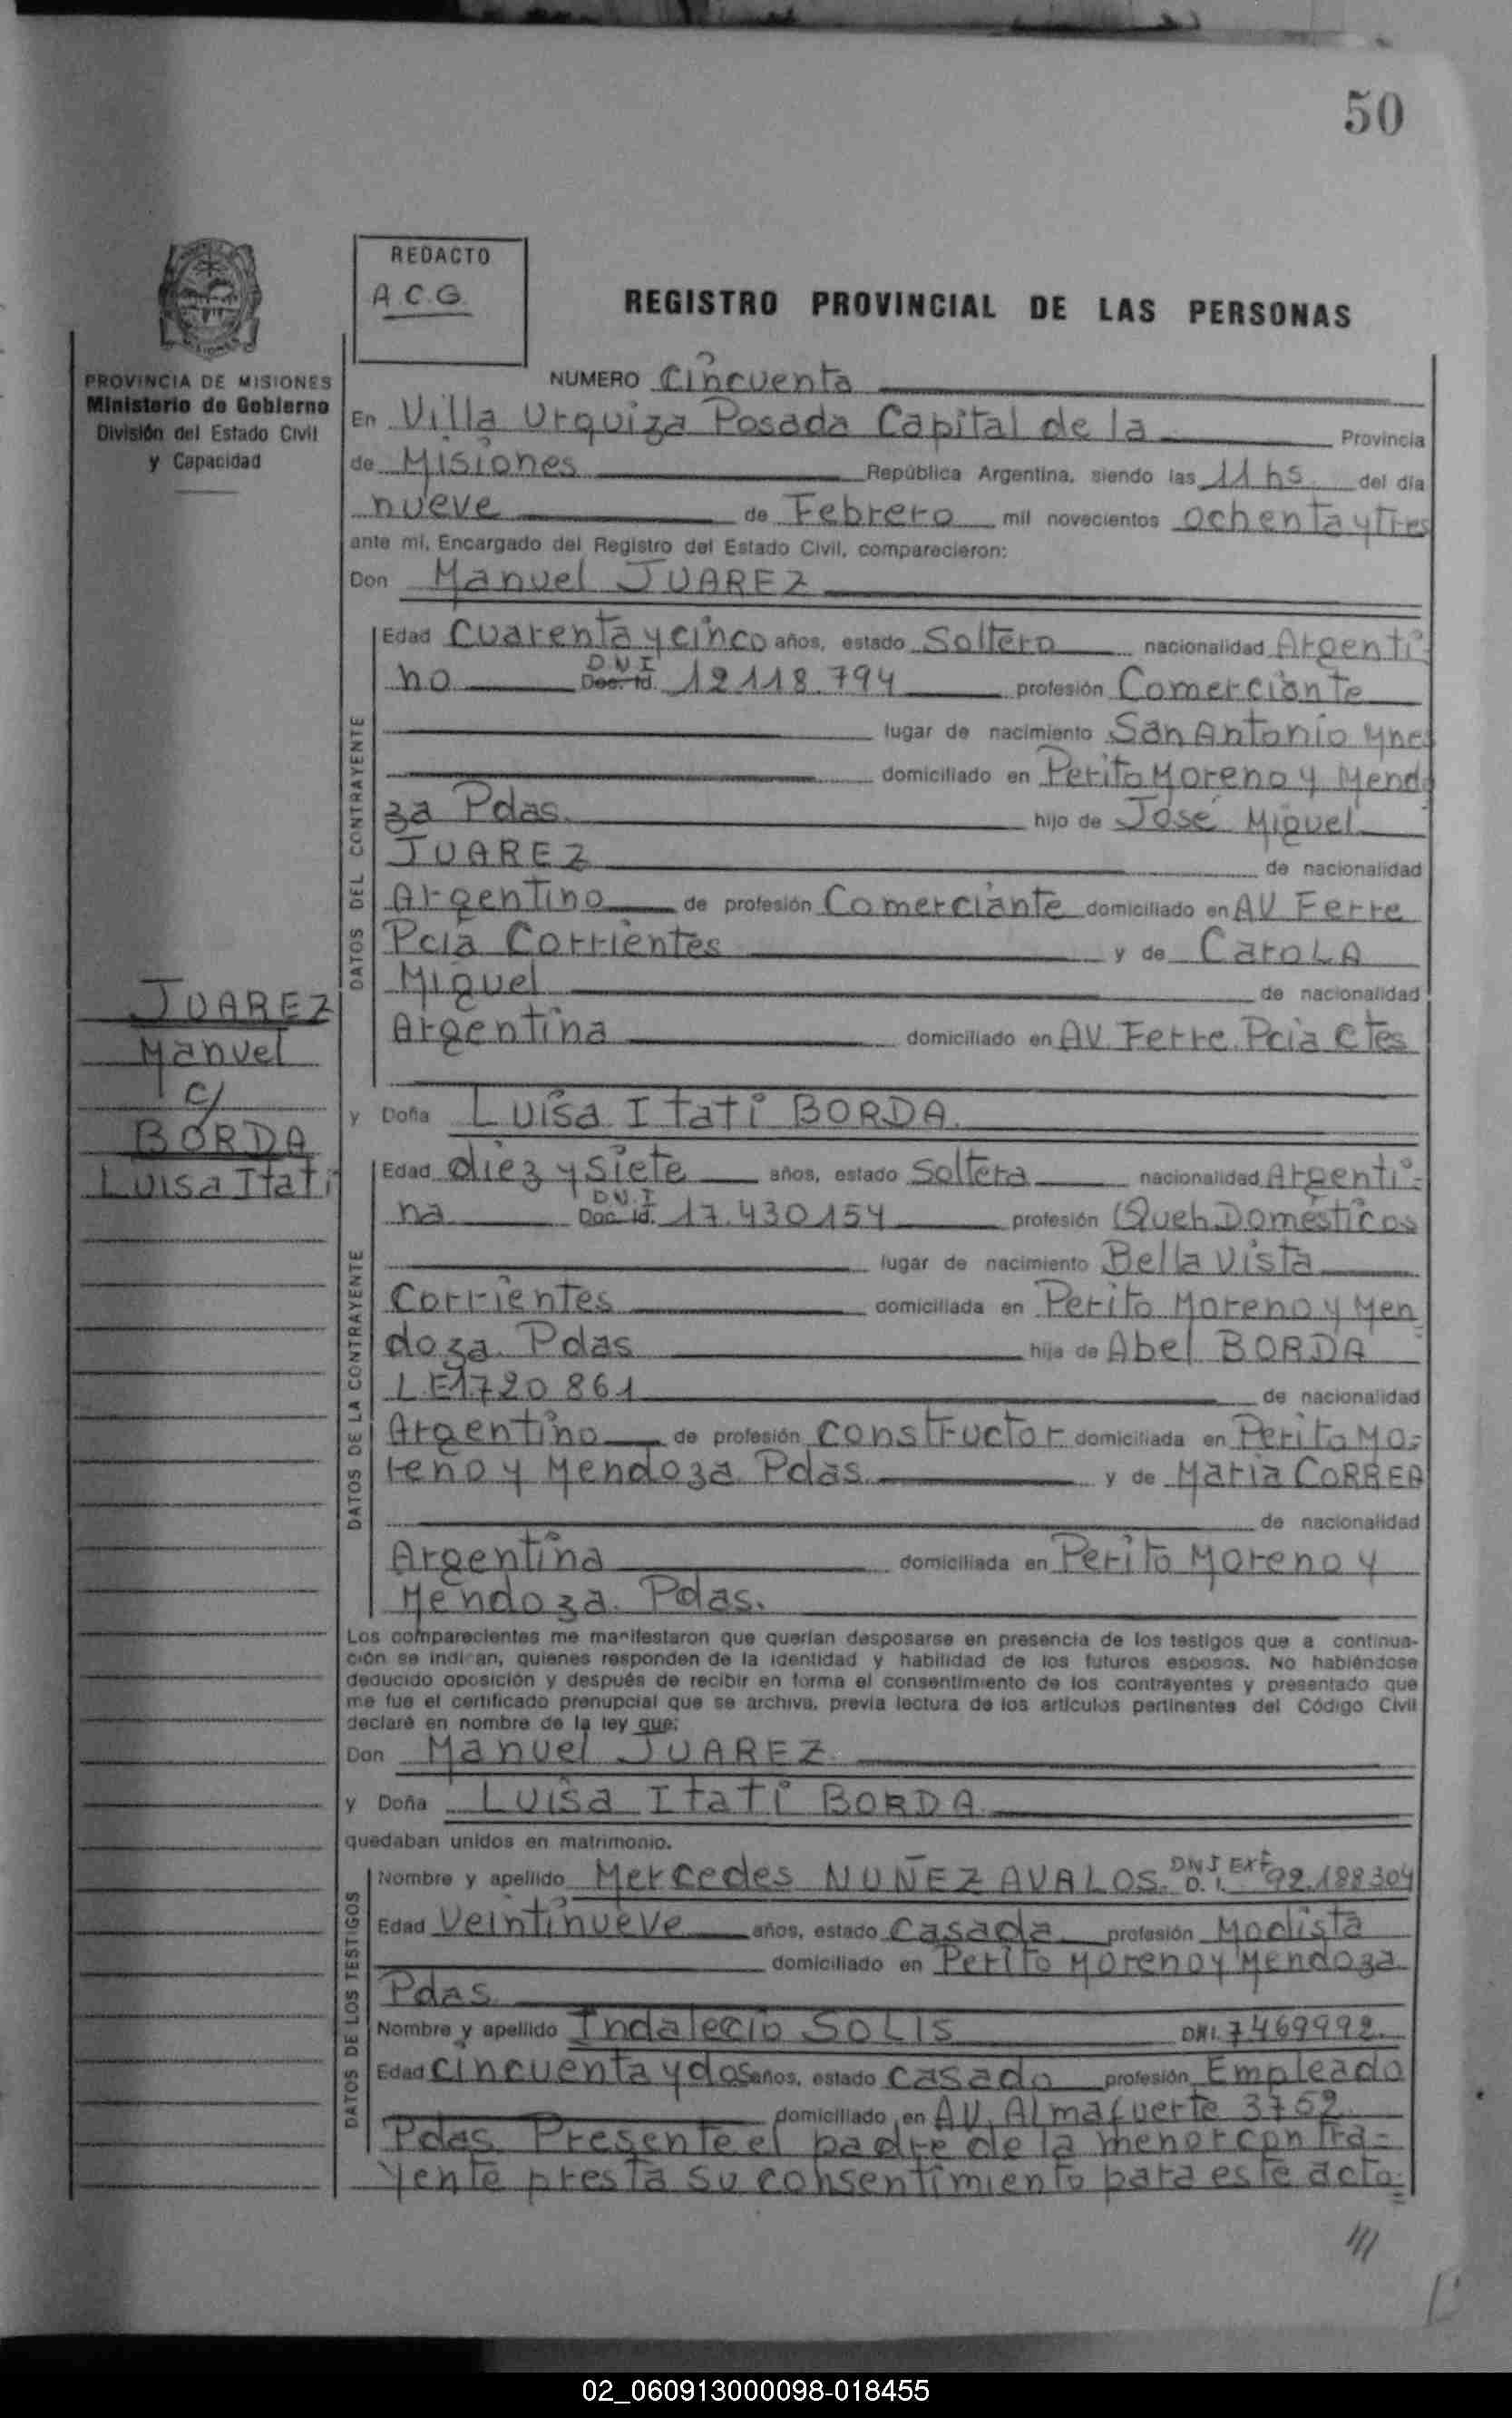 50
REDACTO
A.C.G.
REGISTRO PROVINCIAL DE LAS PERSONAS
PROVINCIA DE MISIONES
Ministerio de Gobierno
División del Estado Civil
y Capacidad
NUMERO Cincuenta
En Villa Urquiza Posada Capital de la Provincia
de Misiones República Argentina, siendo las 11 hs del día
nueve de Febrero mil novecientos ochenta y tres
ante mí, Encargado del Registro del Estado Civil, comparecieron:
Don Manuel JUAREZ
DATOS DEL CONTRAYENTE
Edad Cuarenta y cinco años, estado Soltero nacionalidad Argenti
no D.N.I Doc. Id. 12.118.794 profesión Comerciante
lugar de nacimiento San Antonio Mnes
domiciliado en Perito Moreno y Mendo
za Pdas. hijo de José Miguel
JUAREZ de nacionalidad
Argentino de profesión Comerciante domiciliado en AV Ferre
Pcia Corrientes y de CaroLA
Miguel de nacionalidad
Argentina domiciliado en AV. Ferre. Pcia Ctes
JUAREZ
Manuel
c/
BORDA
Luisa Itati
y Doña Luisa Itati BORDA.
DATOS DE LA CONTRAYENTE
Edad diez y siete años, estado Soltera nacionalidad Argenti-
na D.N.I Doc. Id. 17.430.154 profesión Queh Domésticos
lugar de nacimiento Bella Vista
Corrientes domiciliada en Perito Moreno y Men
doza. Pdas hija de Abel BORDA
L.E 1.720 861 de nacionalidad
Argentino de profesión constructor domiciliada en Perito Mo-
reno y Mendoza Pdas. y de Maria CORREA
de nacionalidad
Argentina domiciliada en Perito Moreno y
Mendoza. Pdas.
Los comparecientes me manifestaron que querían desposarse en presencia de los testigos que a continua-
ción se indican, quienes responden de la identidad y habilidad de los futuros esposos. No habiéndose
deducido oposición y después de recibir en forma el consentimiento de los contrayentes y presentado que
me fue el certificado prenupcial que se archiva, previa lectura de los artículos pertinentes del Código Civil
declaré en nombre de la ley que:
Don Manuel JUAREZ
y Doña Luisa Itati BORDA.
quedaban unidos en matrimonio.
DATOS DE LOS TESTIGOS
Nombre y apellido Mercedes NUÑEZ AVALOS. DNI EXT D. I. 92.188304
Edad Veintinueve años, estado Casada profesión Modista
domiciliado en Perito Moreno y Mendoza
Pdas.
Nombre y apellido Indalecio SOLIS DNI. 7469992.
Edad cincuenta y dos años, estado casado profesión Empleado
domiciliado en AV. Almafuerte 3752
Pdas. Presente el padre de la menor contra-
yente presta su consentimiento para este acto.
02_060913000098-018455